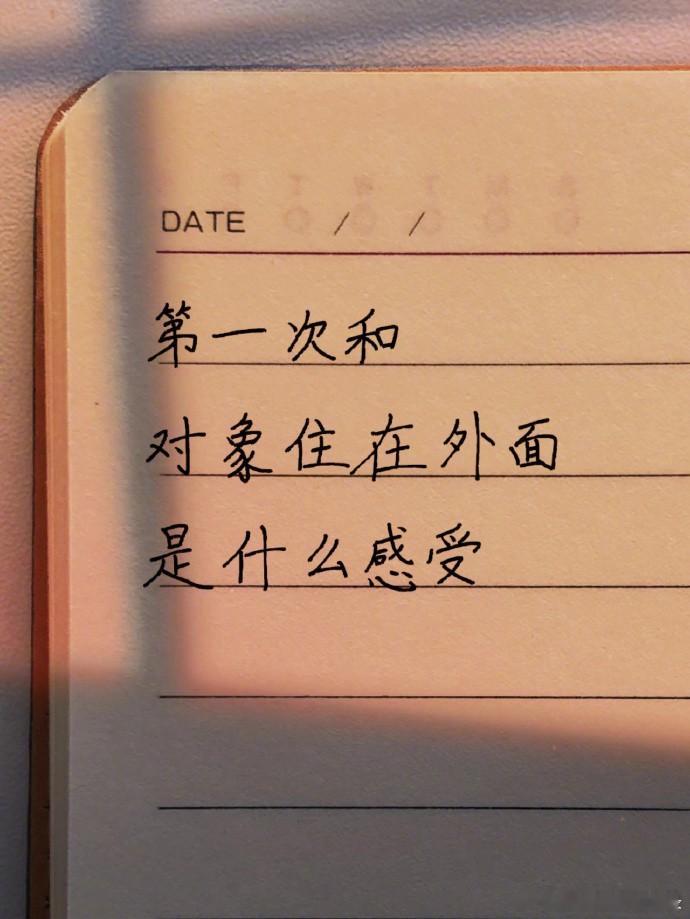 DATE / /
第一次和
对象住在外面
是什么感受